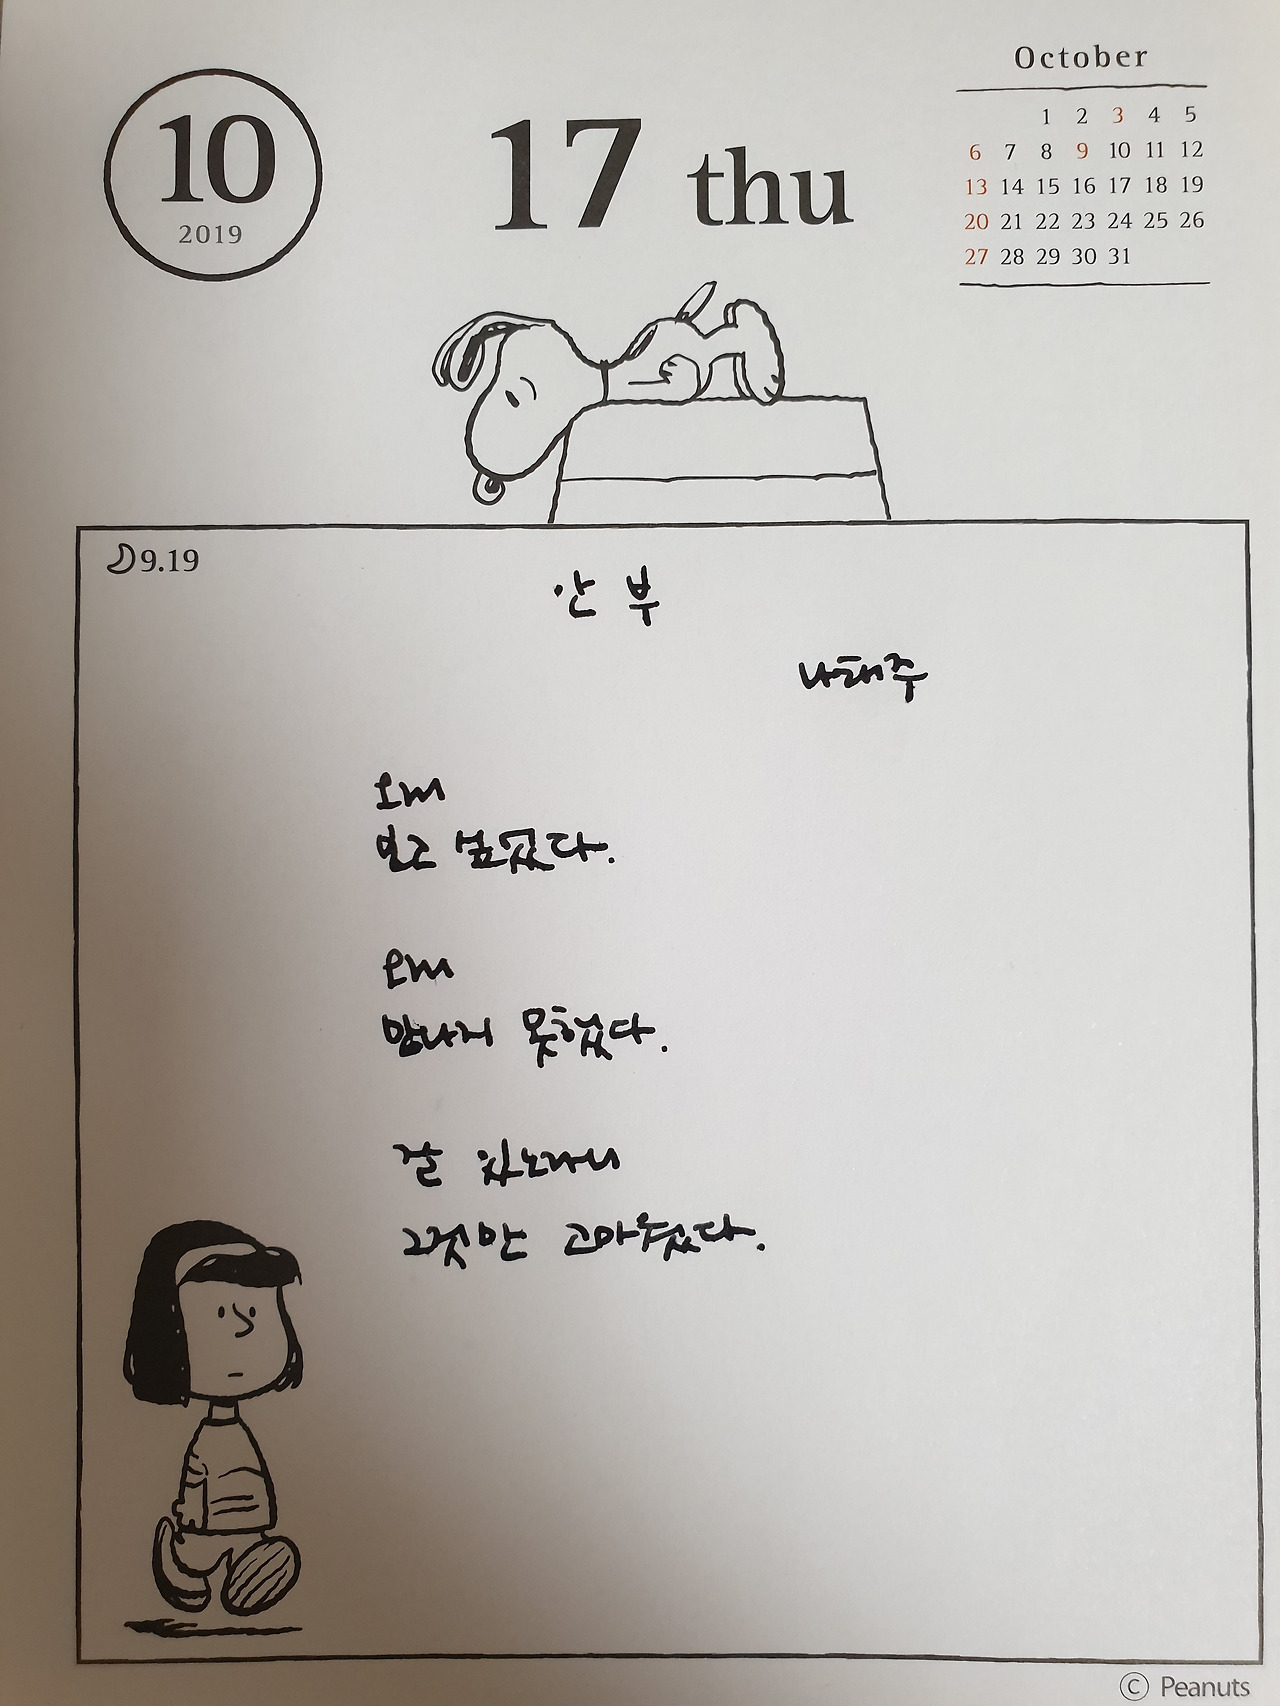 October
10
2019
17 thu
1 2 3 4 5
6 7 8 9 10 11 12
13 14 15 16 17 18 19
20 21 22 23 24 25 26
27 28 29 30 31
9.19
안부
나태주
오래
보고 싶었다.
오래
만나지 못했다.
잘 있노라니
그것만 고마웠다.
© Peanuts